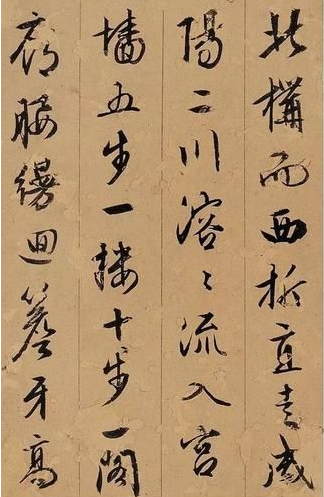 北構而西折直走咸
陽二川溶〻流入宫
墻五步一樓十步一閣
廊腰縵迴簷牙高